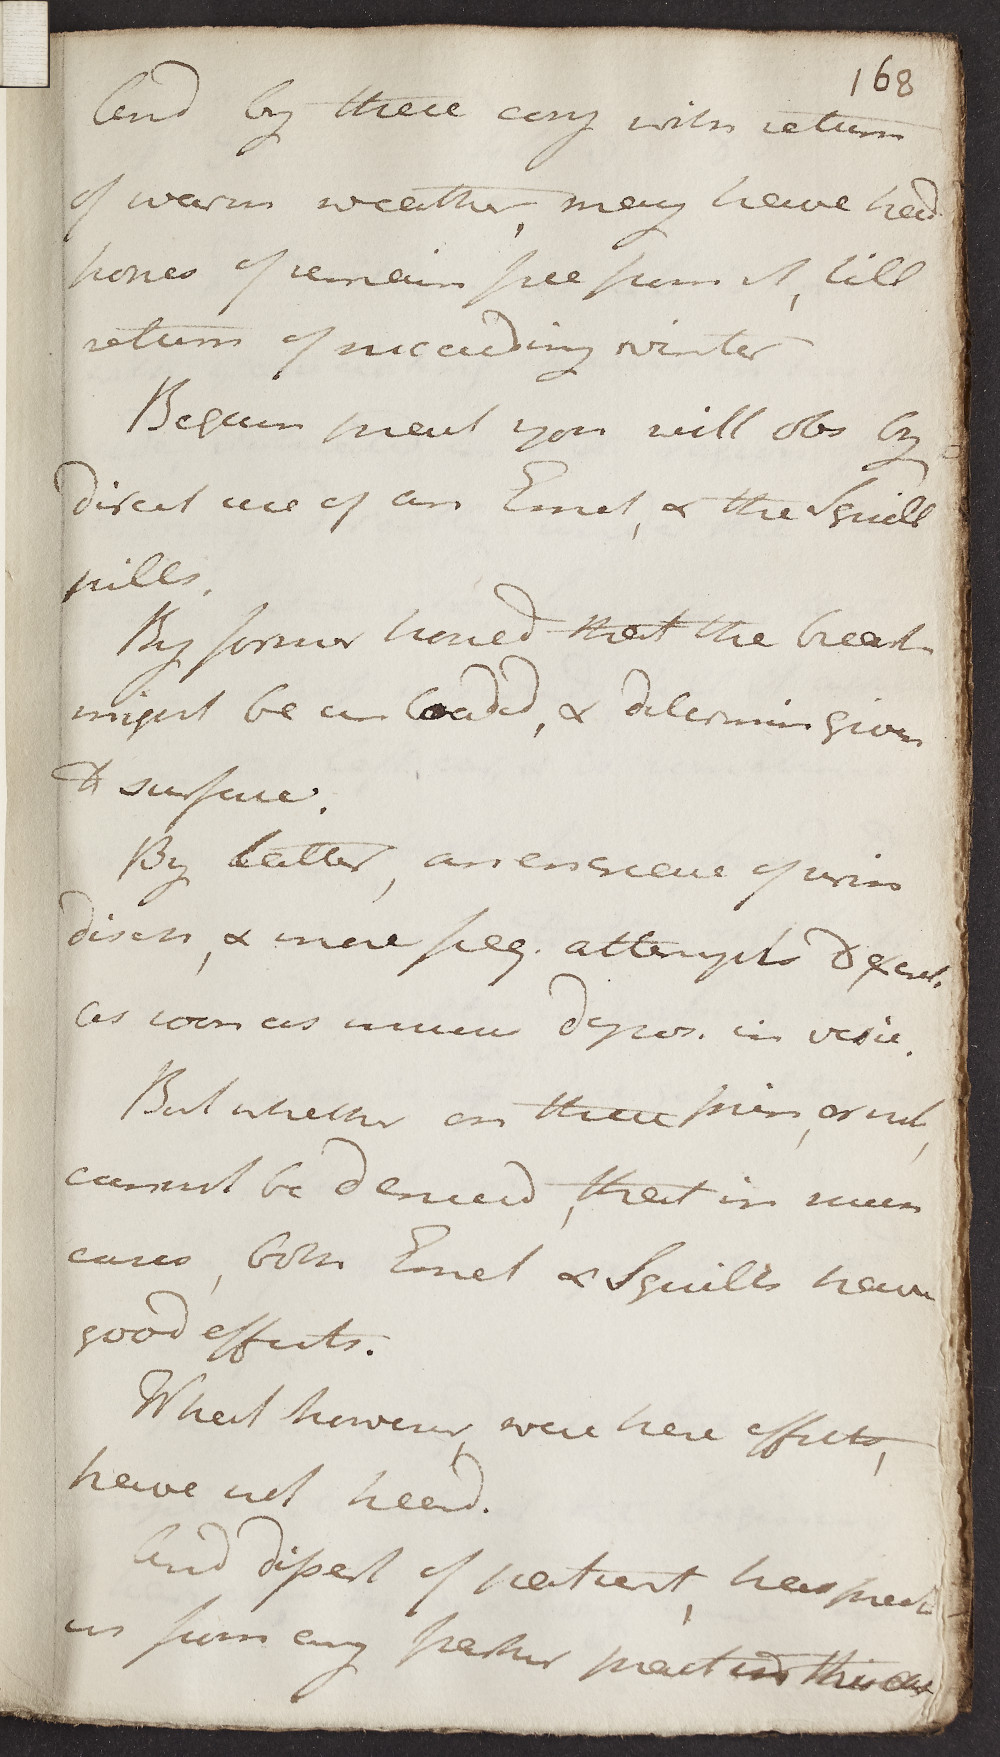 168
And by these easy with return
of warm weather, may have had
hopes of remain free from it, till
return of succeeding winter
Begun pract you will obs by
direct use of an Emet, & the Squill
pills.
By former hoped that the breast
might be un loaded, & determin given
to surface.
By latter, an encrease of urin
disch, & more freq. attempts to expect.
as soon as mucus depos. in vesic.
But whether on these prin, or not,
cannot be denied, that in such
cases, both Emet & Squills have
good effects.
What however, were here effects,
have not heard.
And disposl of patient, has prevt
us from any farther pract in this case